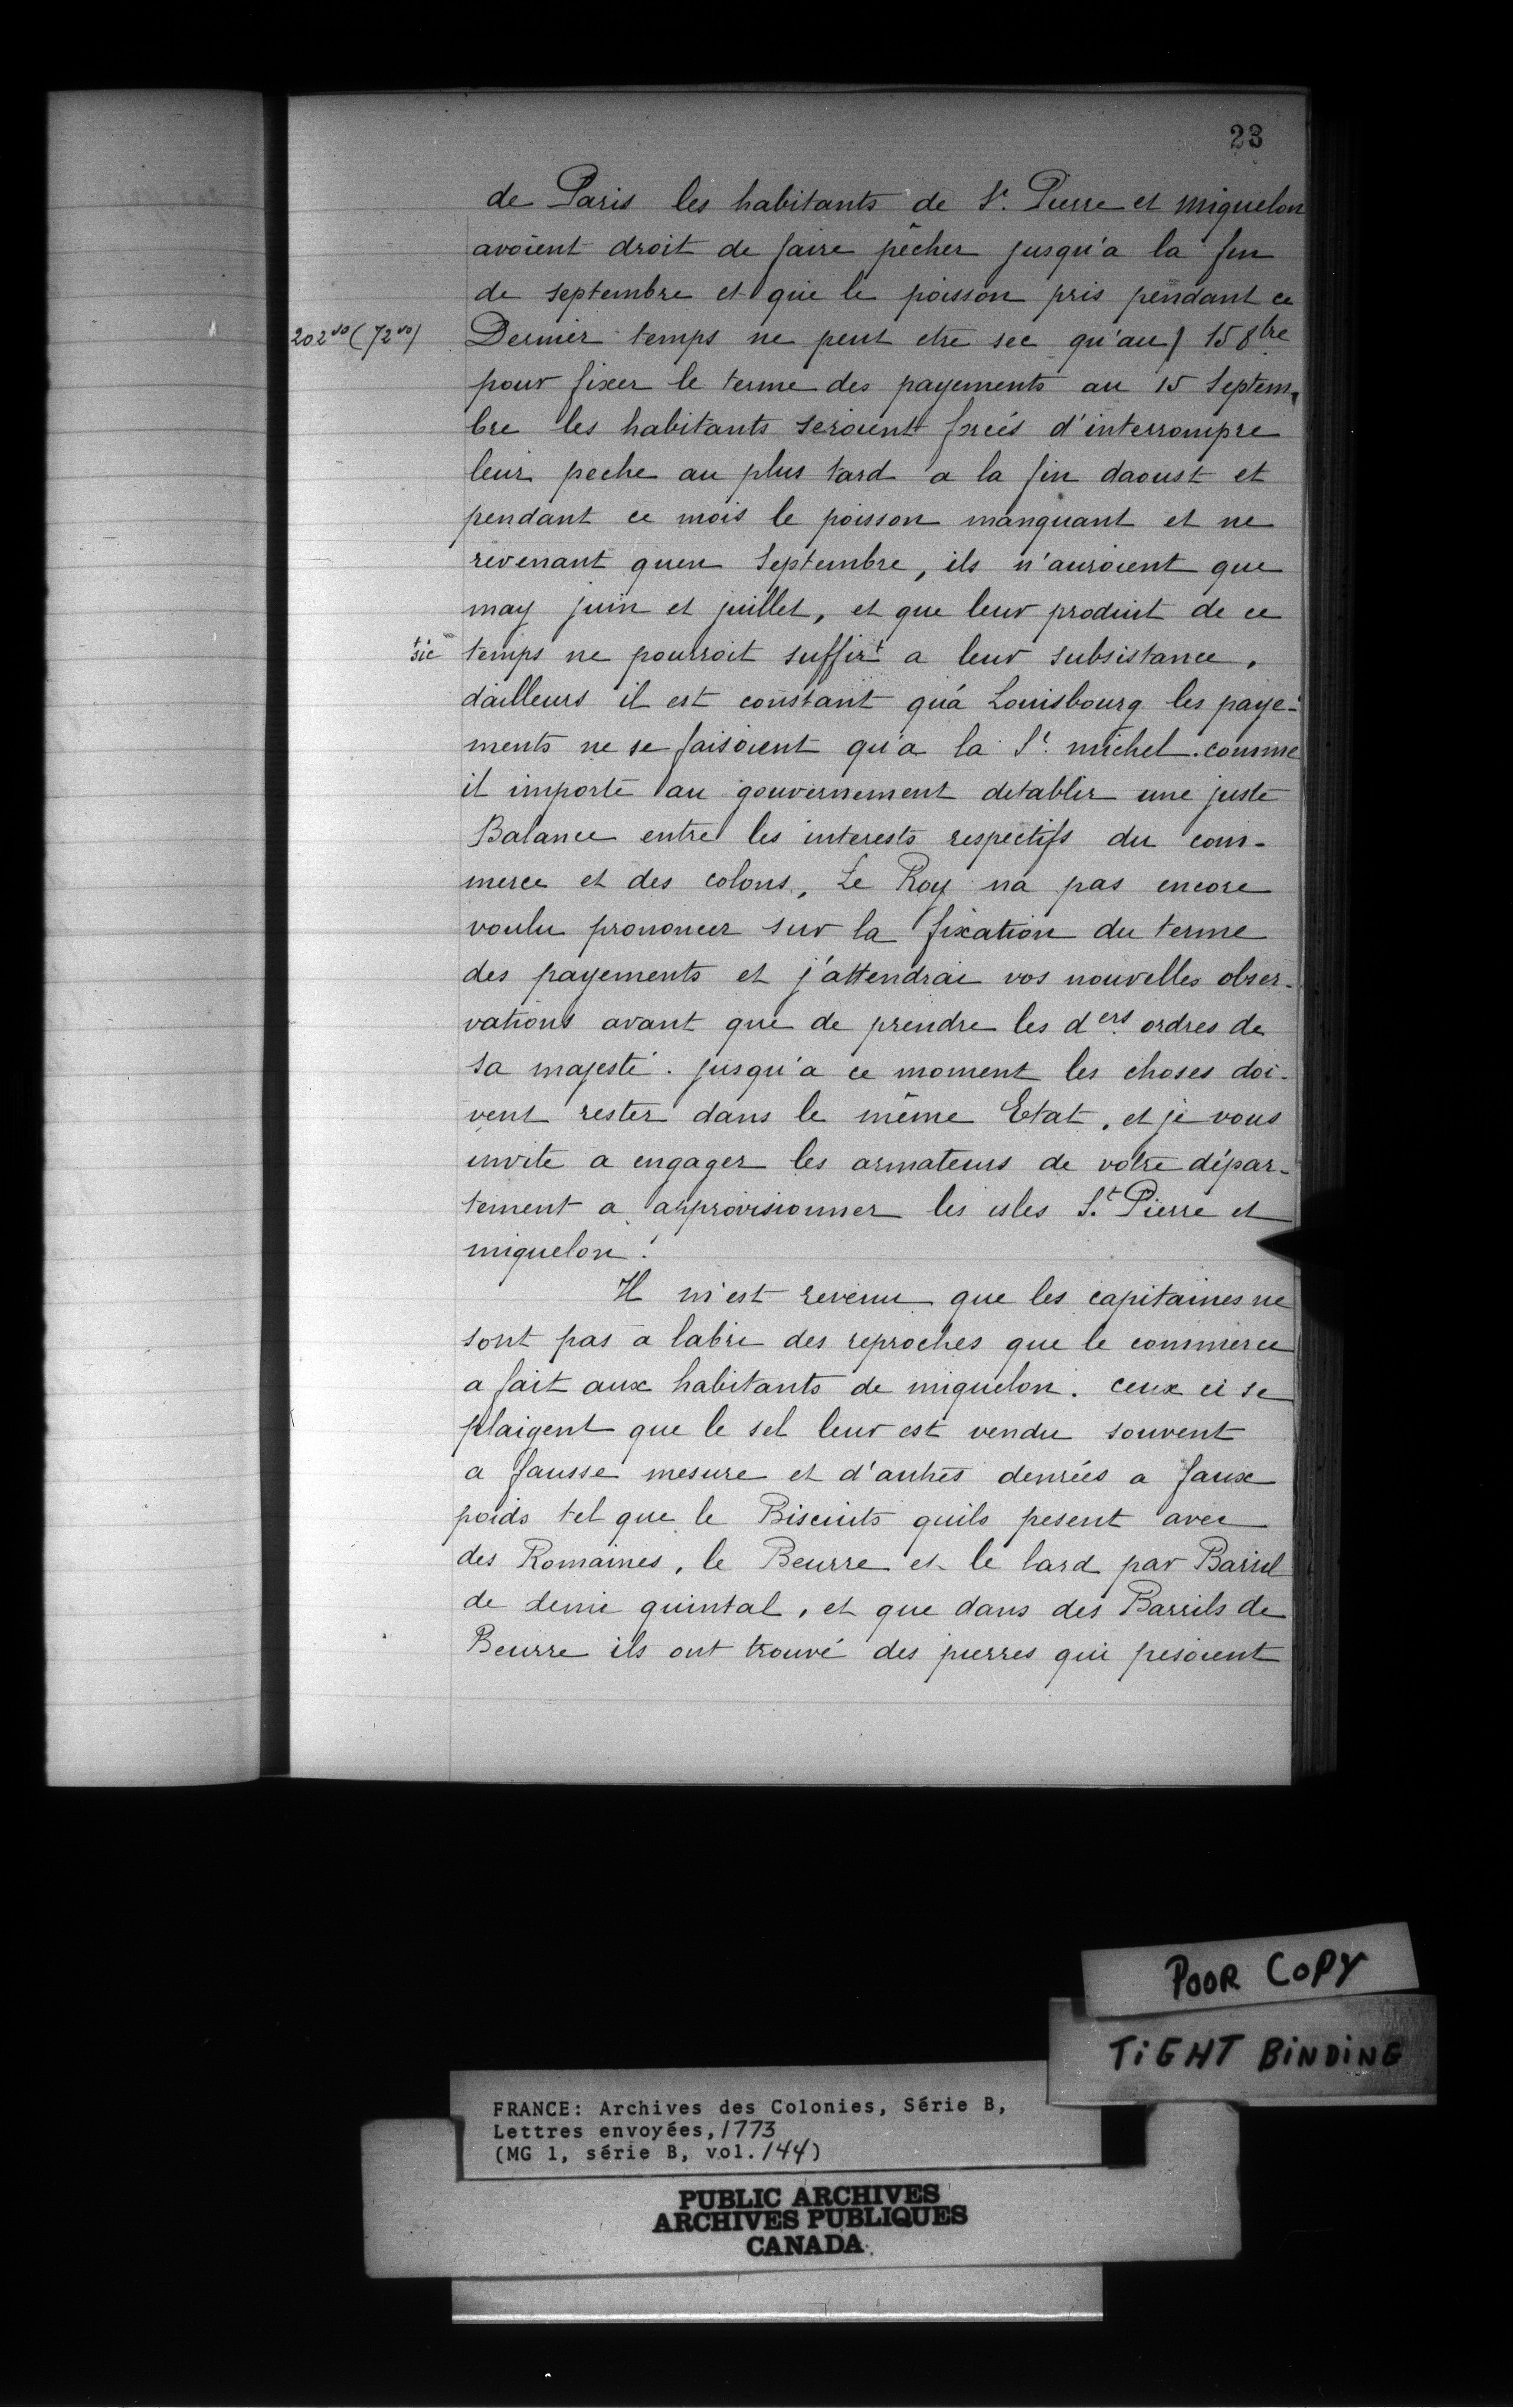 23
de Paris les habitants de St. Pierre et miquelon
avoient droit de faire pêcher jusqu'a la fin
de septembre et que le poisson pris pendant ce
202 vo (72 vo) Dernier temps ne peut etre sec qu'au) 15 8bre
pour fixer le terme des payements au 15 Septem-
bre les habitants seroient forcés d'interrompre
leur peche au plus tard a la fin daoust et
pendant ce mois le poisson manquant et ne
revenant quen Septembre, ils n'auroient que
may juin et juillet, et que leur produit de ce
+ sic temps ne pourroit suffir+ a leur subsistance,
dailleurs il est constant qu'á Louisbourg les paye-
ments ne se faisoient qu'a la St. michel. comme
il importe au gouvernement detablir une juste
Balance entre les interests respectifs du com-
merce et des colons, Le Roy na pas encore
voulu prononcer sur la fixation du terme
des payements et j'attendrai vos nouvelles obser-
vations avant que de prendre les ders ordres de
sa majesté. jusqu'a ce moment les choses doi-
vent rester dans le même Etat, et je vous
invite a engager les armateurs de votre dépar-
tement a approvisionner les isles St. Pierre et
miquelon.
Il m'est revenu que les capitaines ne
sont pas a labri des reproches que le commerce
a fait aux habitants de miquelon. ceux ci se
plaigent que le sel leur est vendu souvent
a fausse mesure et d'autres denrées a faux
poids tel que le Biscuits quils pesent avec
des Romaines, le Beurre et le lard par Barril
de demie quintal, et que dans des Barrils de
Beurre ils ont trouvé des pierres qui pesoient
POOR COPY
TIGHT BINDING
FRANCE: Archives des Colonies, Série B,
Lettres envoyées, 1773
(MG 1, série B, vol. 144)
PUBLIC ARCHIVES
ARCHIVES PUBLIQUES
CANADA